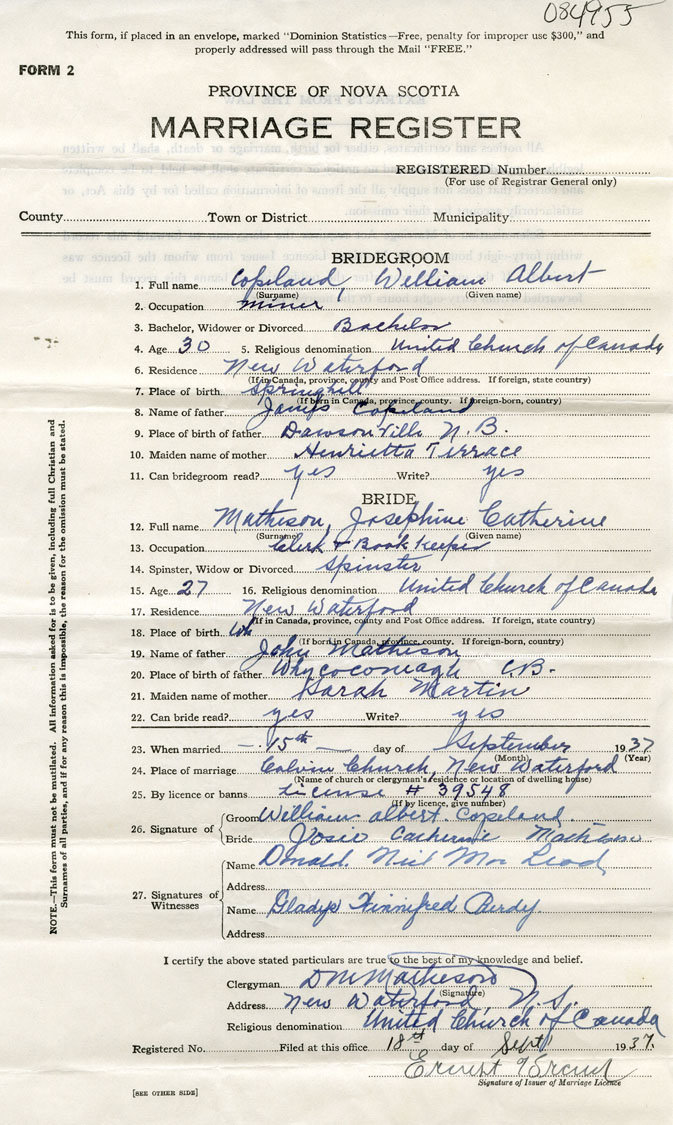 084955
This form, if placed in an envelope, marked "Dominion Statistics—Free, penalty for improper use $300," and
properly addressed will pass through the Mail "FREE."
FORM 2
PROVINCE OF NOVA SCOTIA
MARRIAGE REGISTER
REGISTERED Number
(For use of Registrar General only)
County Town or District Municipality
BRIDEGROOM
1. Full name Copeland, William Albert
(Surname) (Given name)
2. Occupation Miner
3. Bachelor, Widower or Divorced Bachelor
4. Age 30 5. Religious denomination United Church of Canada
6. Residence New Waterford
(If in Canada, province, county and Post Office address. If foreign, state country)
7. Place of birth Springhill
(If born in Canada, province, county. If foreign-born, country)
8. Name of father James Copeland
9. Place of birth of father Dawsonville N.B.
10. Maiden name of mother Henrietta Terrace
11. Can bridegroom read? yes Write? yes
BRIDE
12. Full name Matheson, Josephine Catherine
(Surname) (Given name)
13. Occupation Clerk & Book Keeper
14. Spinster, Widow or Divorced Spinster
15. Age 27 16. Religious denomination United Church of Canada
17. Residence New Waterford
(If in Canada, province, county and Post Office address. If foreign, state country)
18. Place of birth
(If born in Canada, province, county. If foreign-born, country)
19. Name of father John Matheson
20. Place of birth of father Whycocomagh C.B.
21. Maiden name of mother Sarah Martin
22. Can bride read? yes Write? yes
23. When married 15th day of September 1937
(Month) (Year)
24. Place of marriage Calvin Church, New Waterford
(Name of church or clergyman's residence or location of dwelling house)
25. By licence or banns License # 39548
(If by licence, give number)
26. Signature of Groom William albert. Copeland
Bride Josie Catherine Matheson
27. Signatures of Witnesses
Name Donald Neil Mac Leod
Address
Name Gladys Winnifred
Address
I certify the above stated particulars are true to the best of my knowledge and belief.
Clergyman D M Matheson
(Signature)
Address New Waterford, N.S.
Religious denomination United Church of Canada
Registered No. Filed at this office 18th day of Sept 1937.
Ernest
Signature of Issuer of Marriage Licence
[SEE OTHER SIDE]
NOTE.—This form must not be mutilated. All information asked for is to be given, including full Christian and
Surnames of all parties, and if for any reason this is impossible, the reason for the omission must be stated.